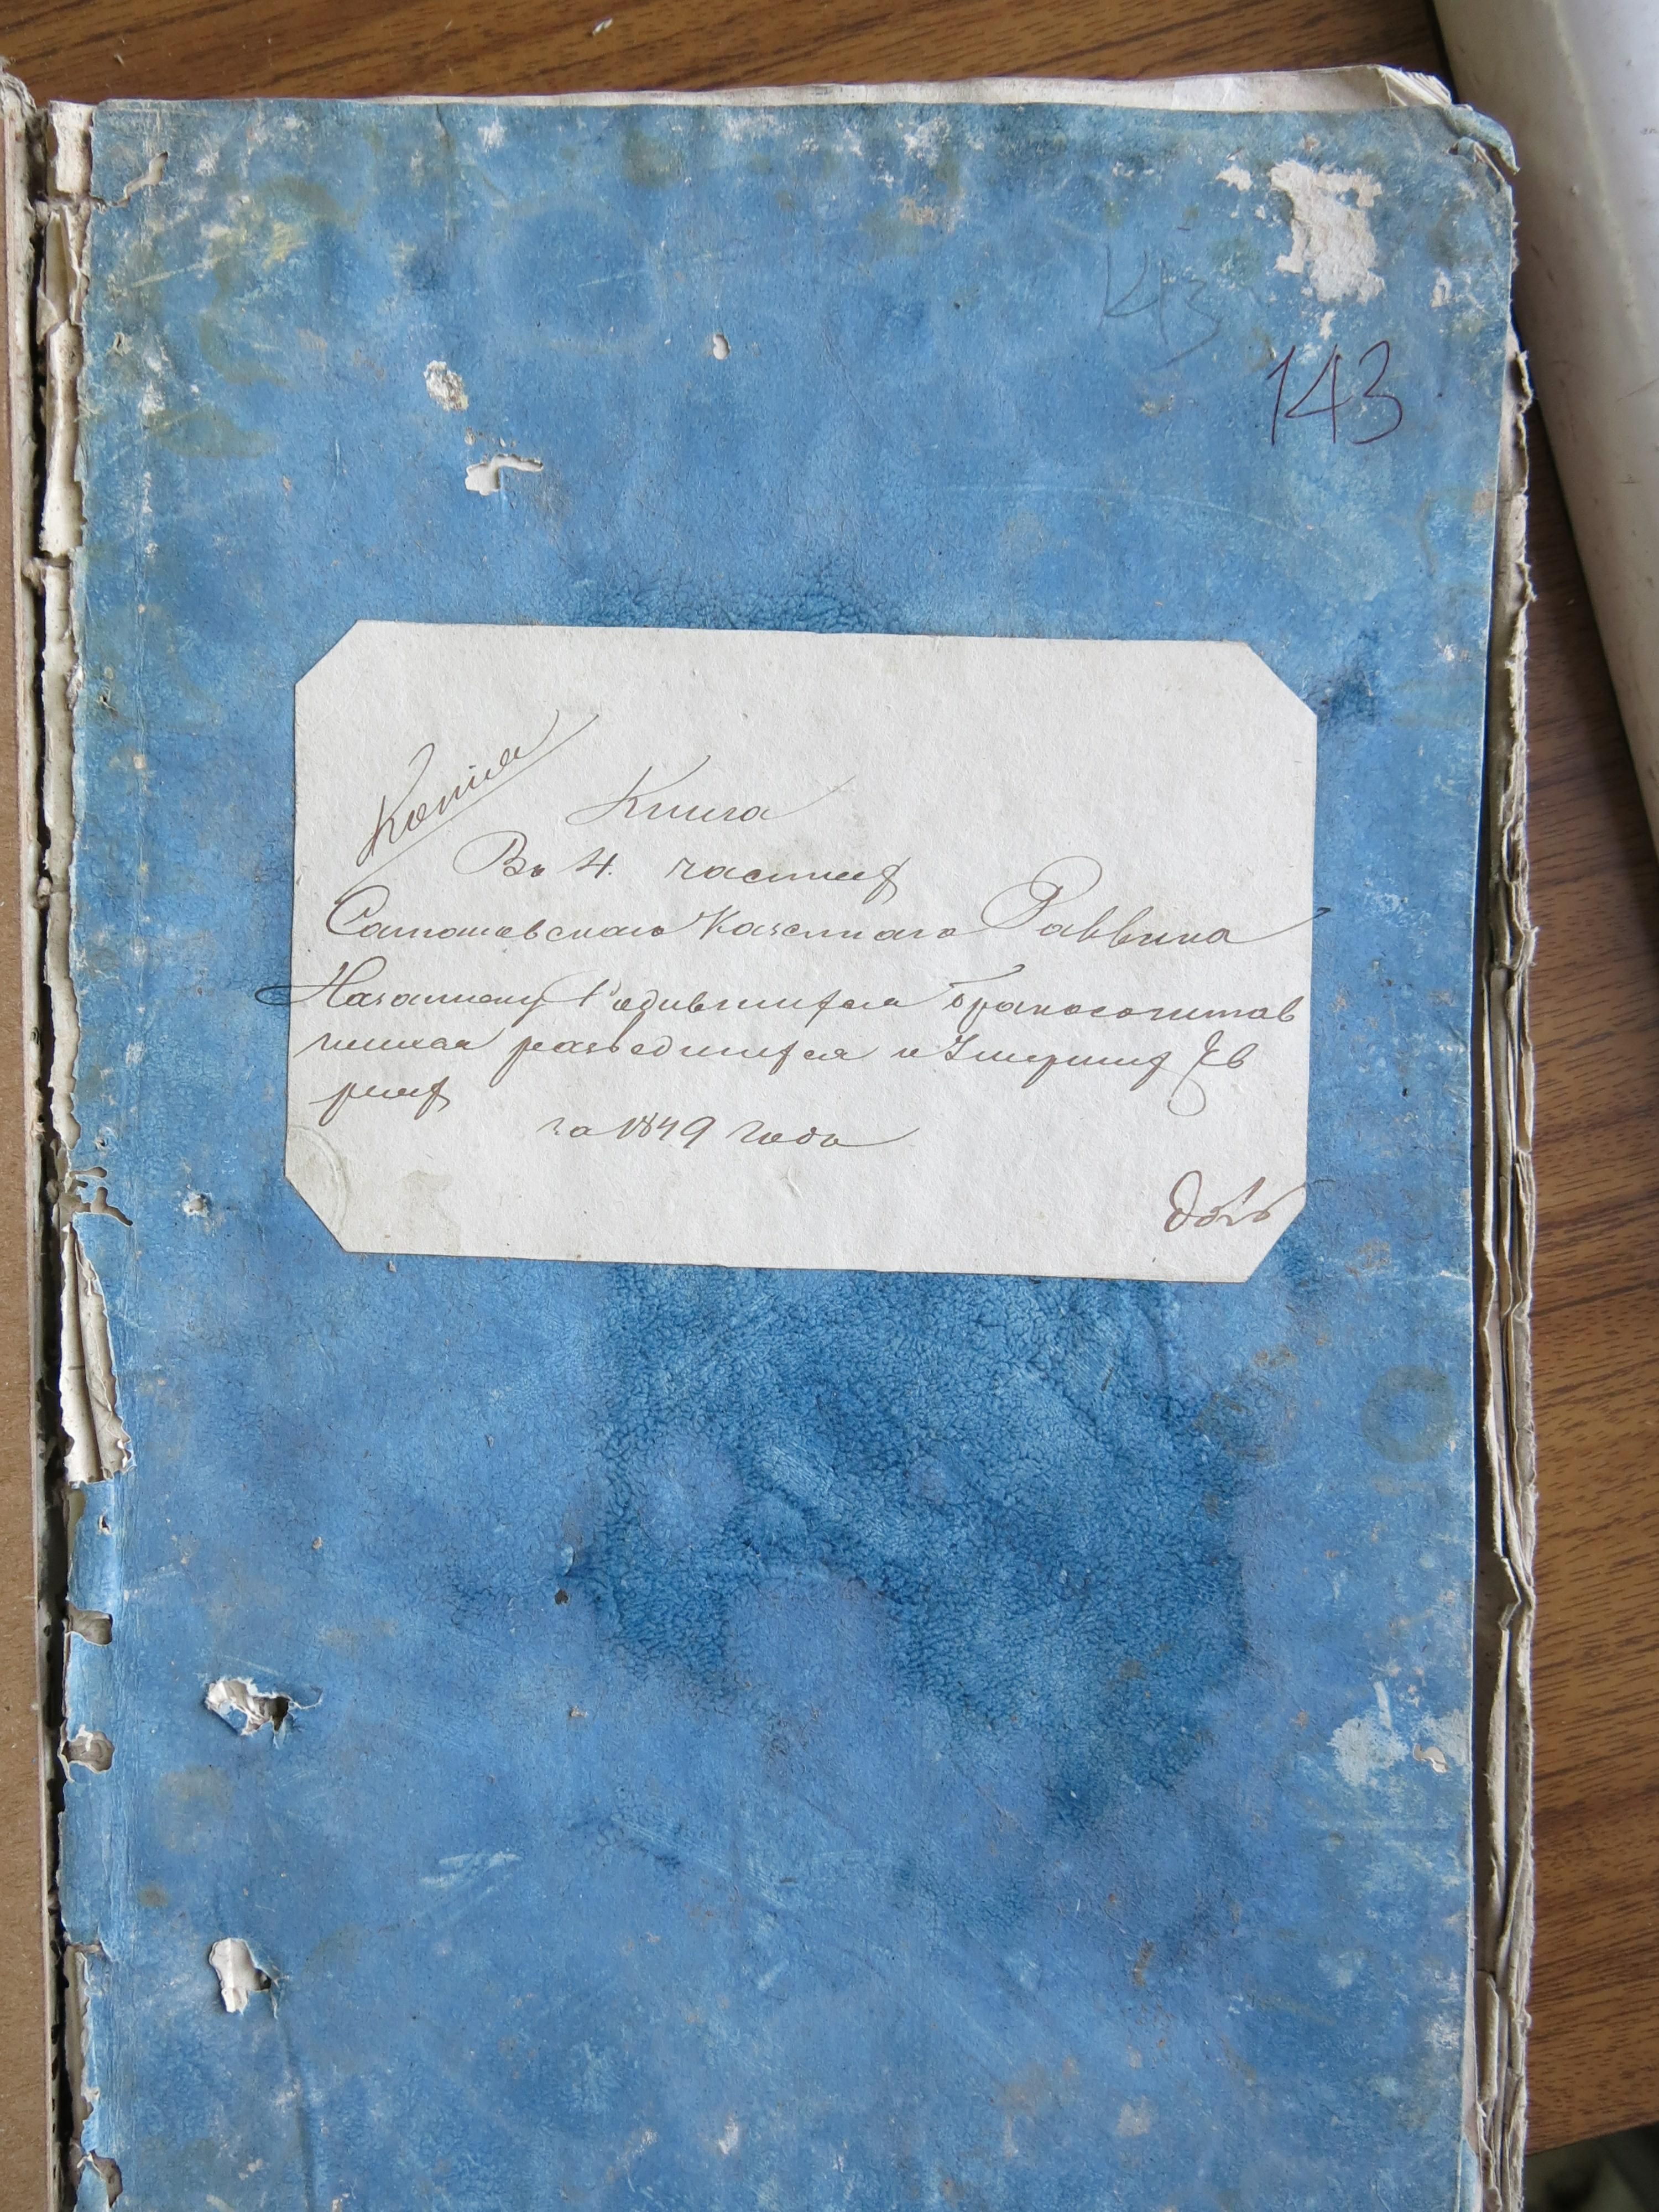 143
143
Копія
Книга
Въ 4. частяхъ
Сатановскаго Казеннаго Раввина
На записку Родившихся бракосочитав
шихся разведшихся и Умершихъ Ев
реяхъ
за 1849 годъ